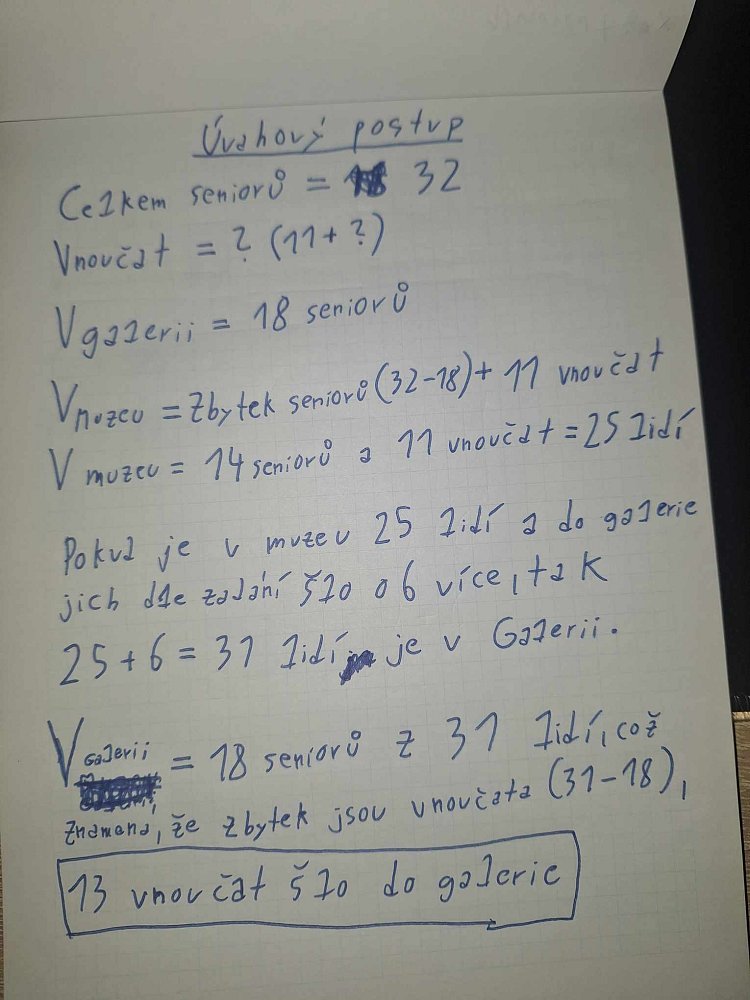 Úvahový postup
Celkem seniorů = 32
Vnoučat = ? (11+?)
V galerii = 18 seniorů
V muzeu = Zbytek seniorů (32-18) + 11 vnoučat
V muzeu = 14 seniorů a 11 vnoučat = 25 lidí
Pokud je v muzeu 25 lidí a do galerie
jich dle zadání šlo o 6 více, tak
25 + 6 = 31 lidí je v Galerii.
V Galerii = 18 seniorů z 31 lidí, což
znamená, že zbytek jsou vnoučata (31-18),
13 vnoučat šlo do galerie